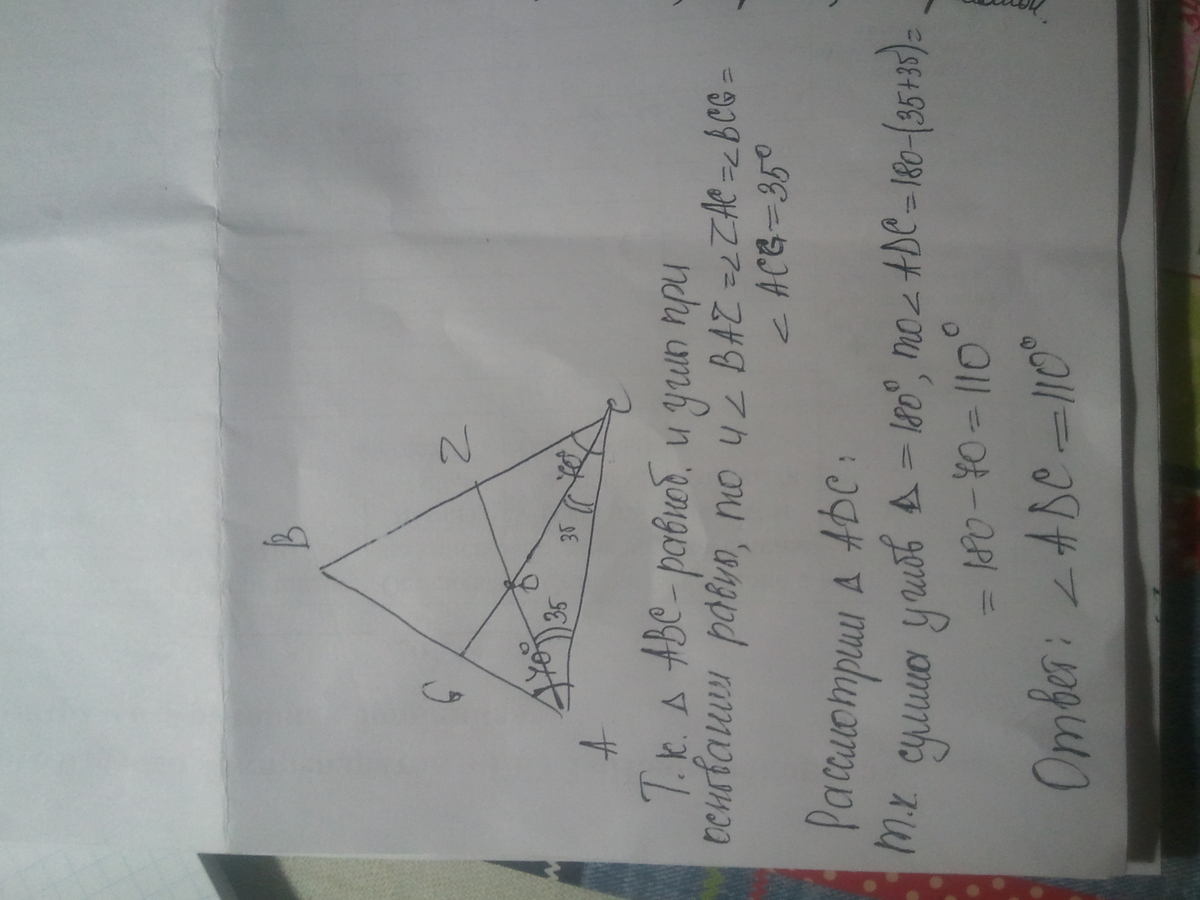 B
G
Z
70°
35
D
35
70°
A
C
Т.к. Δ ABC – равноб. и углы при
основании равны, то и < BAZ = < ZAC = < BCG =
< ACG = 35°
Рассмотрим Δ ADC:
т.к. сумма углов Δ = 180°, то < ADC = 180 – (35+35) =
= 180 – 70 = 110°
Ответ: < ADC = 110°